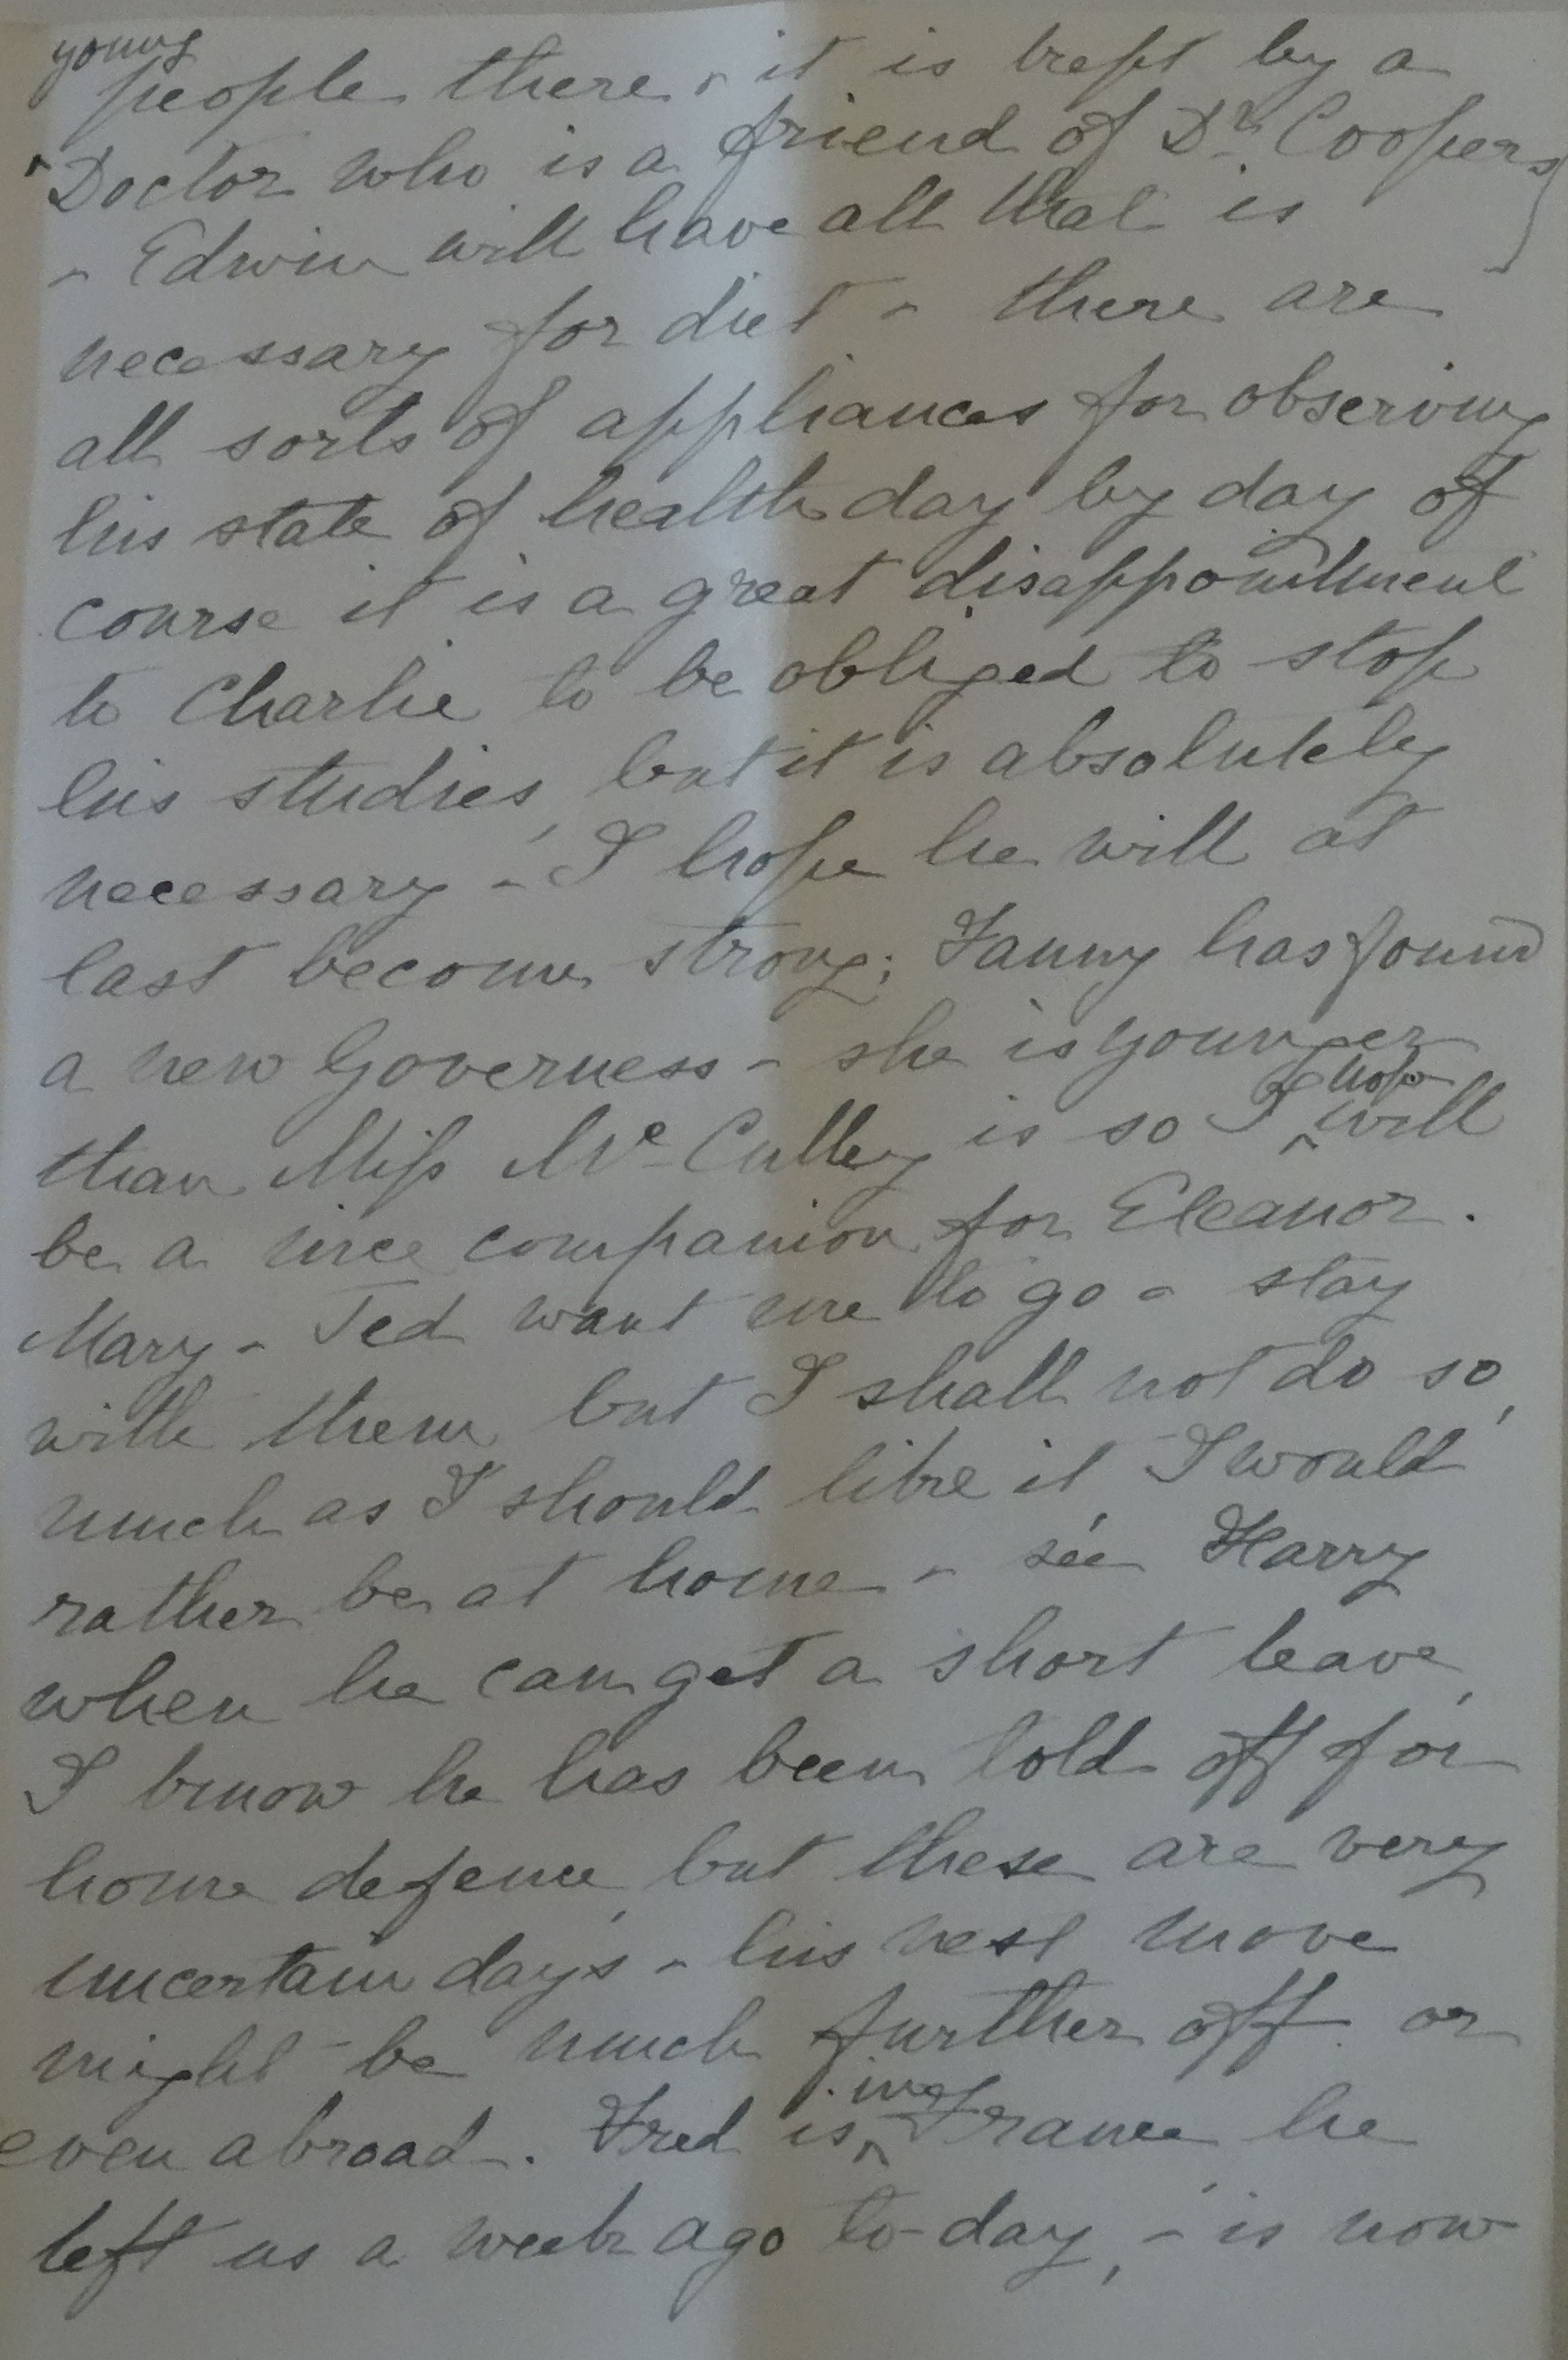 young
people there - it is kept by a
Doctor who is a friend of Dr. Coopers
- Edwin will have all that is
necessary for diet - there are
all sorts of appliances for observing
his state of health day by day of
course it is a great disappointment
to Charlie to be obliged to stop
his studies, but it is absolutely
necessary - I hope he will at
last become strong; Fanny has found
a new Governess - she is younger
hope
than Miss Mc Culley is so I ^ will
be a nice companion for Eleanor.
Mary - Ted want me to go - stay
with them but I shall not do so,
much as I should like it, I would
rather be at home - see Harry
when he can get a short leave,
I know he has been told off for
home defence, but these are very
uncertain days - his next move
might be much further off or
in
even abroad. Fred is ^ France, he
left us a week ago to-day, - is now